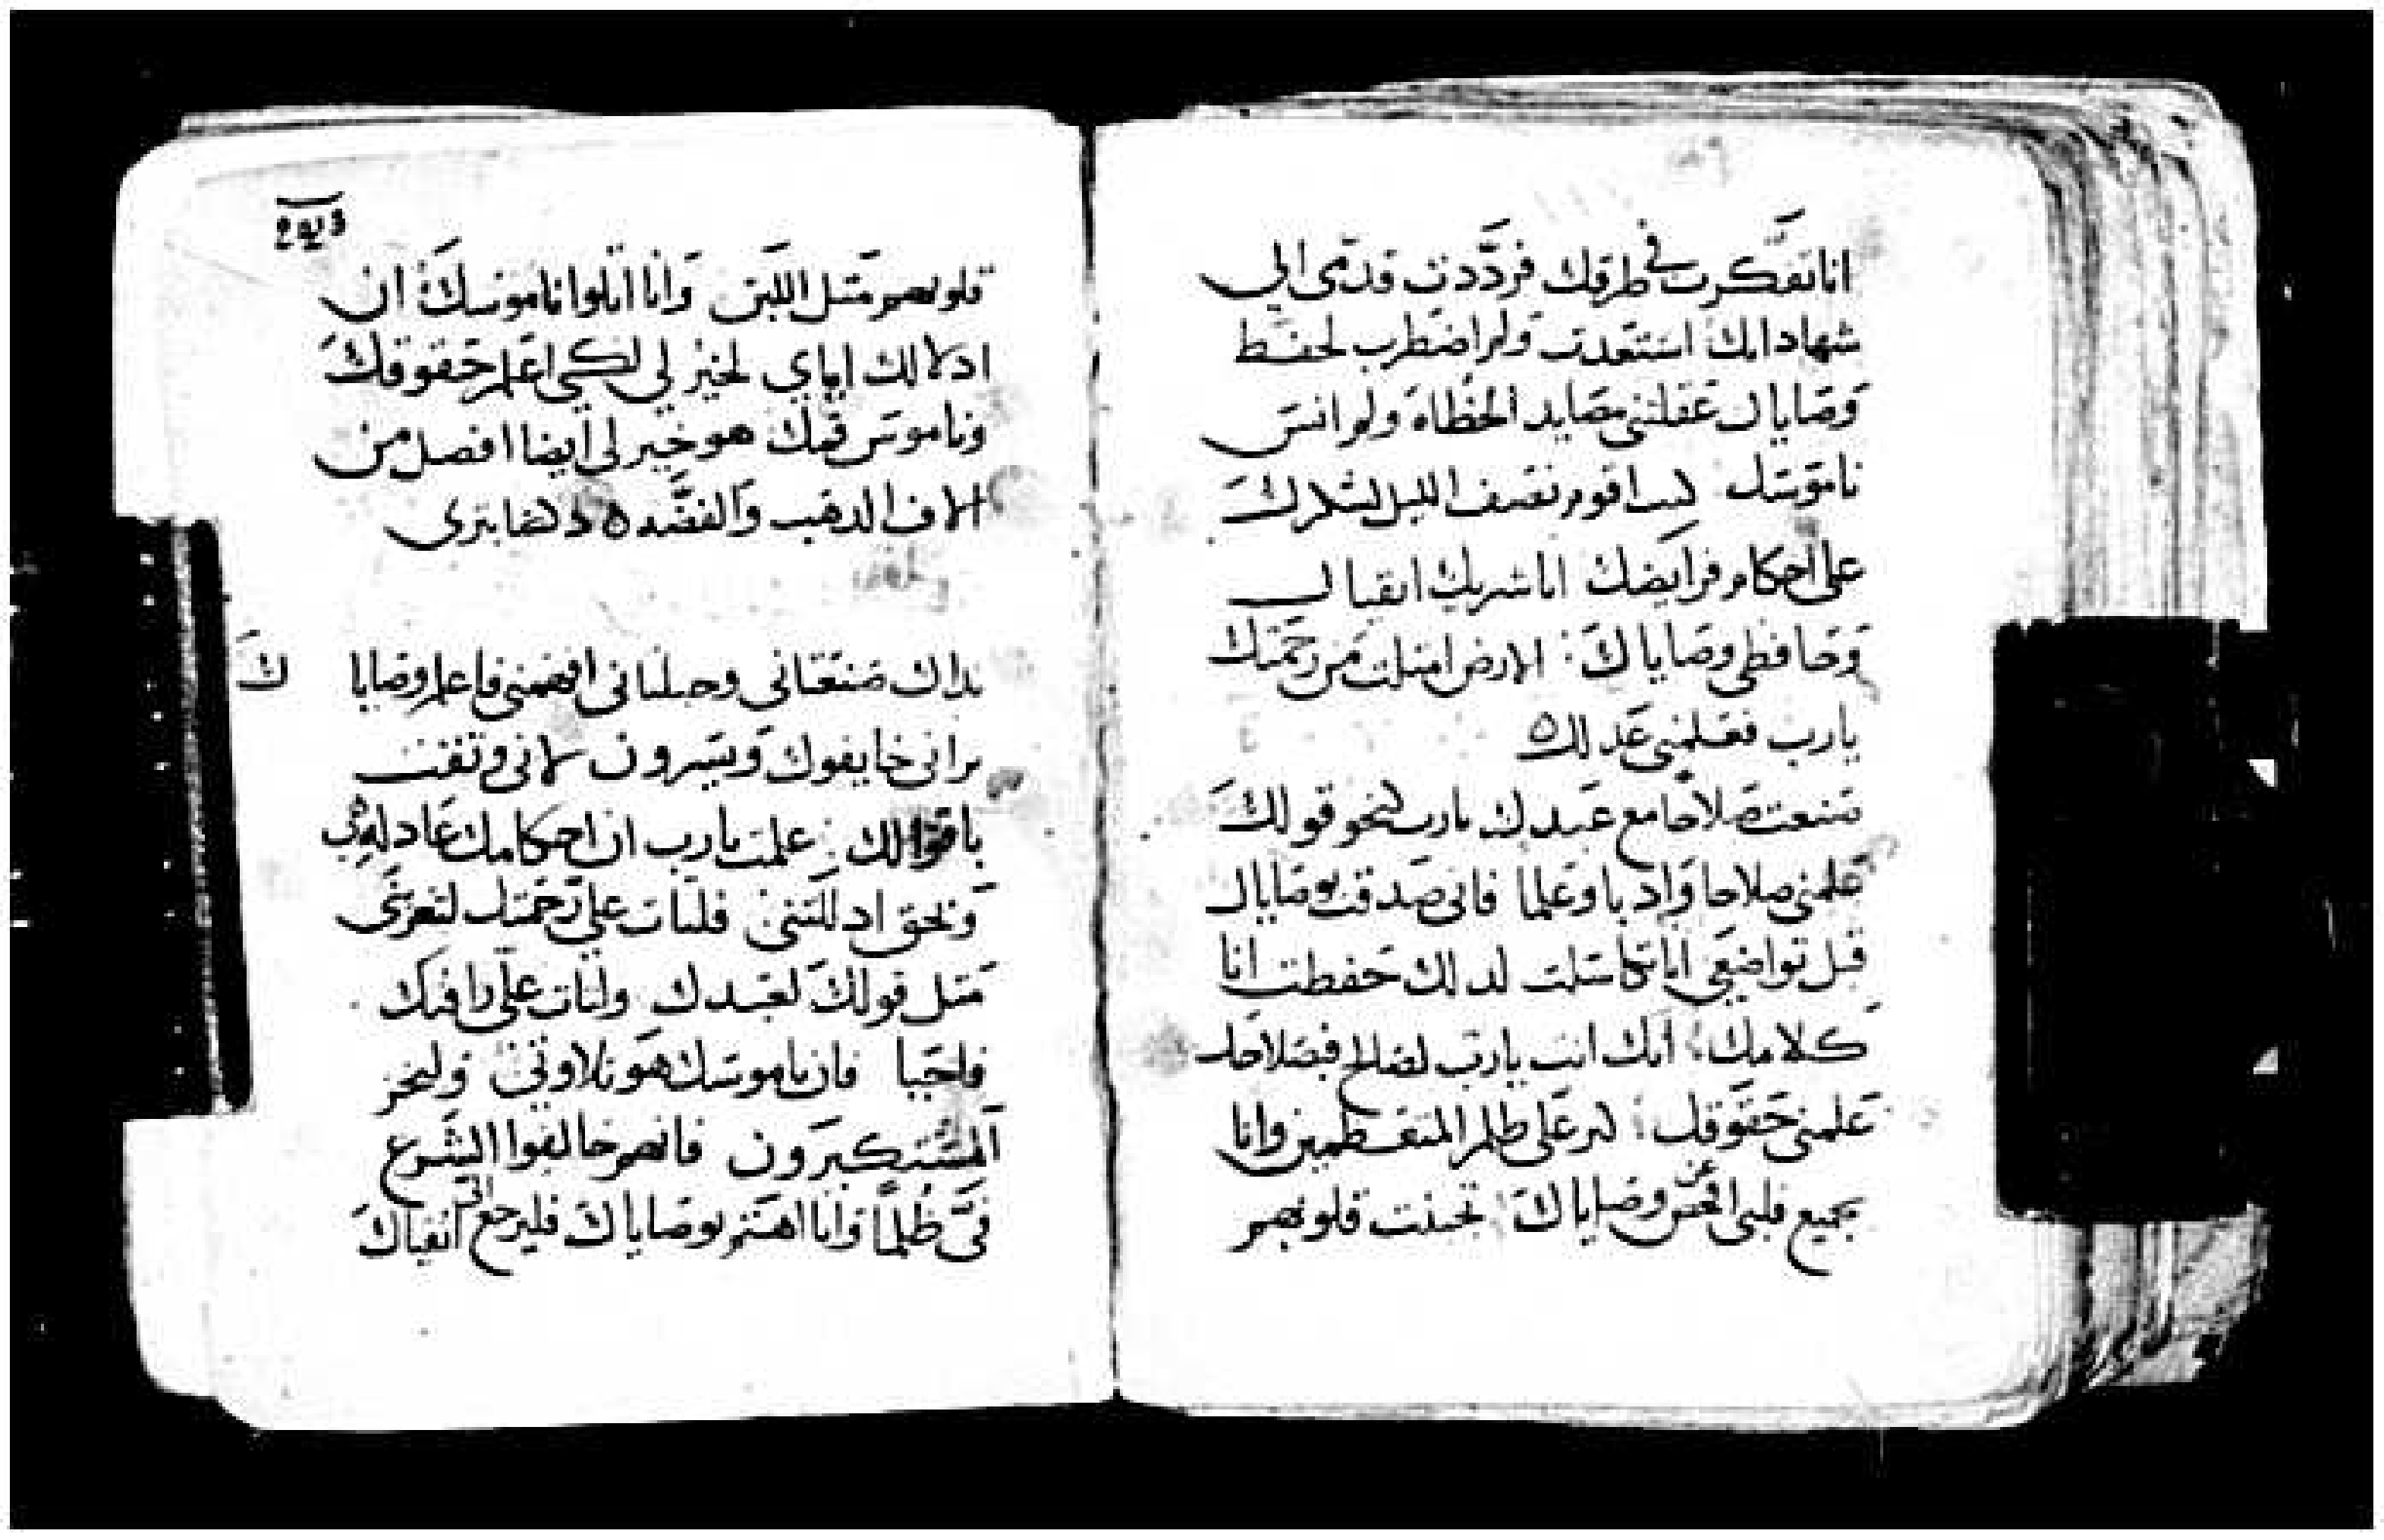 انا تفكرت في طرقك فردّدت قدمى الي
شهاداتك استعدت ولم اضطرب لحفظ
وصاياك عقلتنى مصايد الخطاه ولم انس
ناموسك كنت اقوم نصف الليل لشكرك
على احكام فرايضك انا شريك اتقياك
وحافظى وصاياك الارض امتلت من رحمتك
يارب فعلمنى عدلك ه
صنعت صلاحا مع عبدك يارب كنحو قولك
علمنى صلاحا وادبا وعلما فانى صدقت بوصاياك
قبل تواضعى انا تكاسلت لدلك حفظت انا
كلامك انك انت يارب لصالح فبصلاحك
علمنى حقوقك كثر على ظلم المتعظمين وانا
بجميع قلبى افحص عن وصاياك تجبنت قلوبهم
قلوبهم مثل اللبن وانا اتلوا ناموسك ان
ادلالك اياي لخير لي لكي اعلم حقوقك
وناموس فمك هو خير لى ايضا افضل من
الاف الدهب والفضه ه
يداك صنعتانى وجبلتانى افهمنى فاعلم وصاياك
يرانى خايفوك ويسرون لانى وثقت
باقوالك علمت يارب ان احكامك عادله هى
وبحق ادللتنى فلتات علي رحمتك لتعزينى
مثل قولك لعبدك ولتات علي رافتك
فاحيا فان ناموسك هو تلاوتى وليخز
المستكبرون فانهم خالفوا الشرع
فىّ ظلمًا وانا اهتم بوصاياك فليرجع الى اتقياك